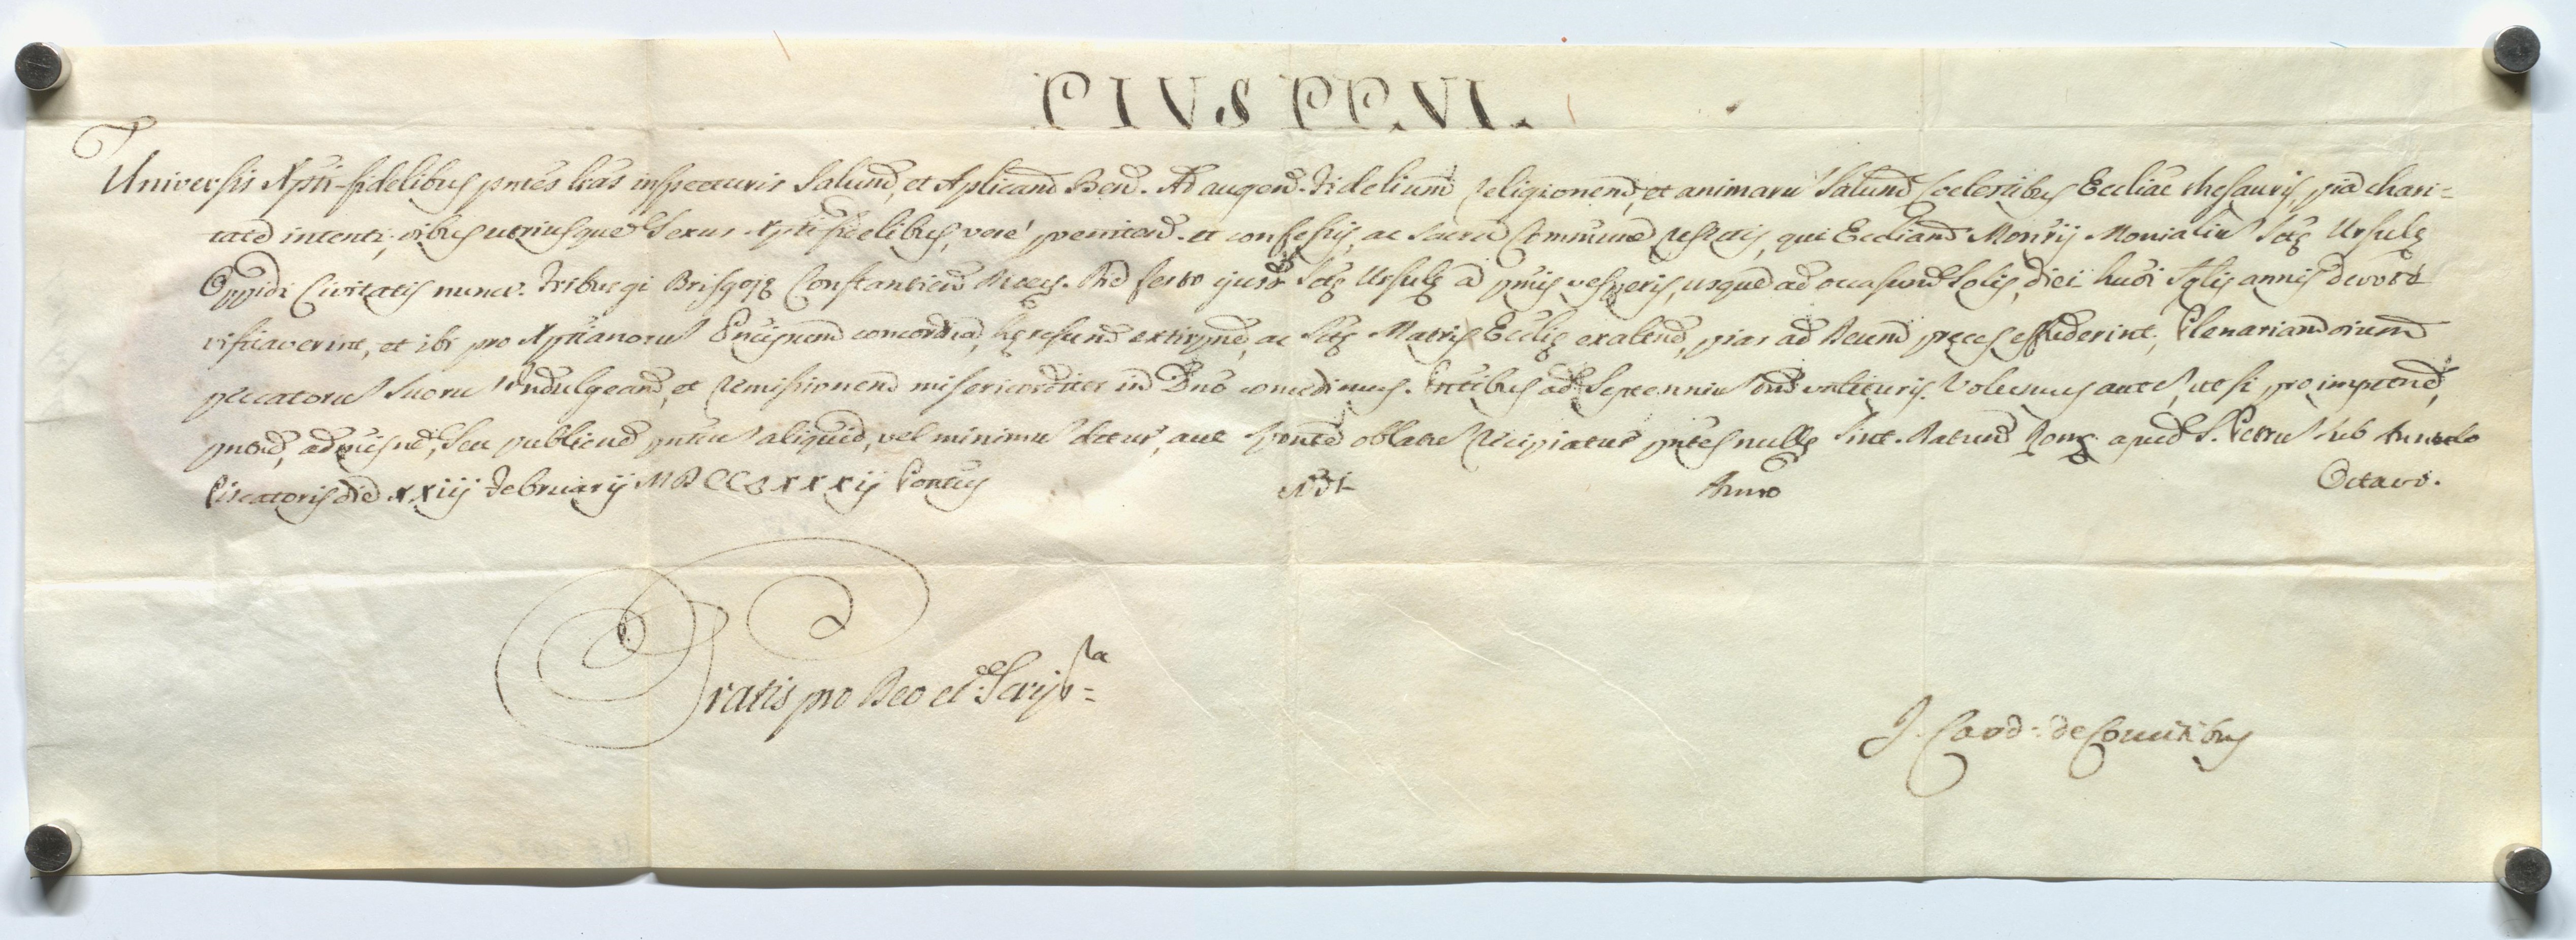 PIUS PP. VI.
Universis Xpti-fidelibus pntes lras inspecturis Salutem, et Aplicam Ben. Ad augend. Fidelium religionem, et animaru Salutem Coelestibus Eccliae thesauris, pia chari-
tate intenti, oibus utriusque Sexus Xptifidelibus, vere penitend. et confessis, ac Sacra Communione refectis, qui Eccliam Monrij Monialiu Stae Ursulae
Oppidi Civitatis nunc. Friburgi Brisgojae Constantien Dioecs. Die festo ejusd Stae Ursulae a pmis vesperis, usque ad occasum Solis, diei hujoi Sglis annis devote
visitaverint, et ibi pro Xptianoru Pncipum concordia, haeresum extirpne, ac Stae Matris Eccliae exaltne, pias ad Deum preces effuderint, Plenariam oium
peccatoru Suoru Indulgeam, et remissionem misericorditer in Dno concedimus. Pntibus ad Septenniu tm valituris. Volumus autem, ut si pro impetne,
pntne, admisne, Seu publicne pntiu aliquid, vel minimu detur, aut sponte oblatu recipiatur pntes nullae Sint. Datum Romae apud S. Petru sub Annulo
Piscatoris die xxiij Februarij MDCCLXXXij Pontus Nri Anno Octavo.
Gratis pro Deo et Scriptra
J. Card: de Comitibus